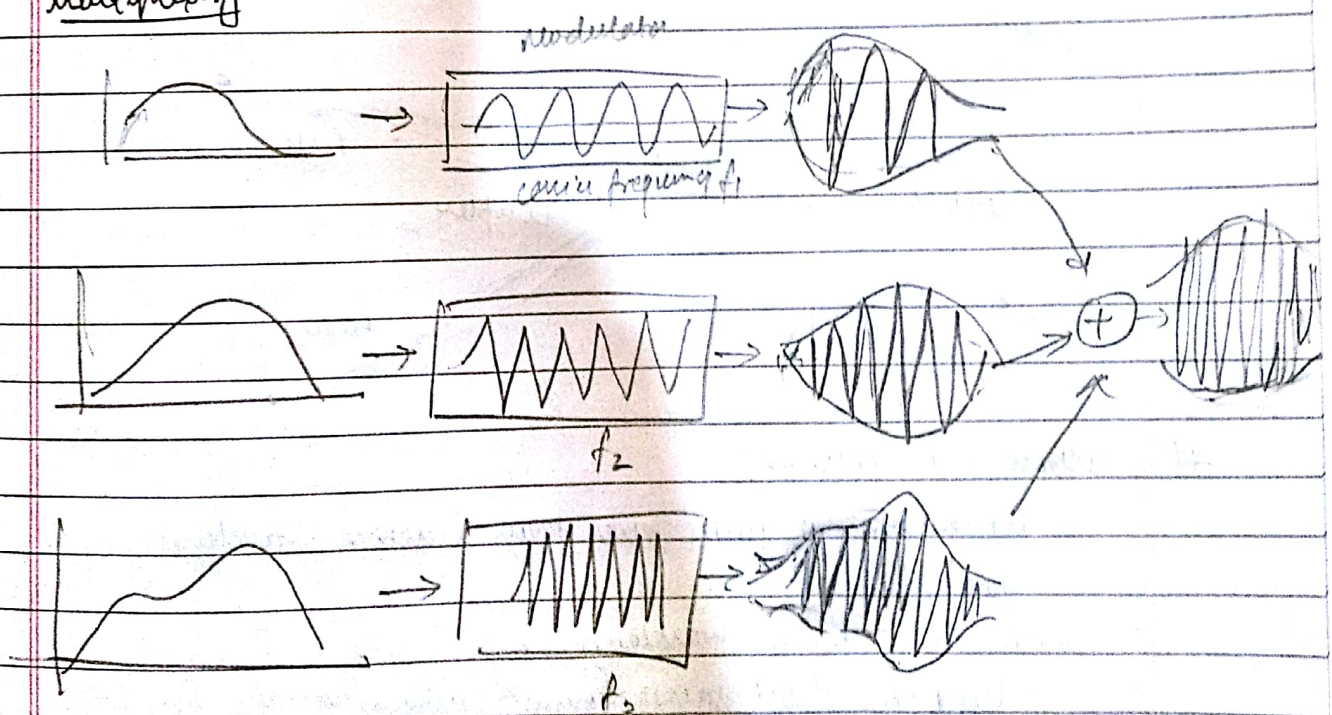 Multiplexing
Modulator
carrier frequency f1
+
f2
f3